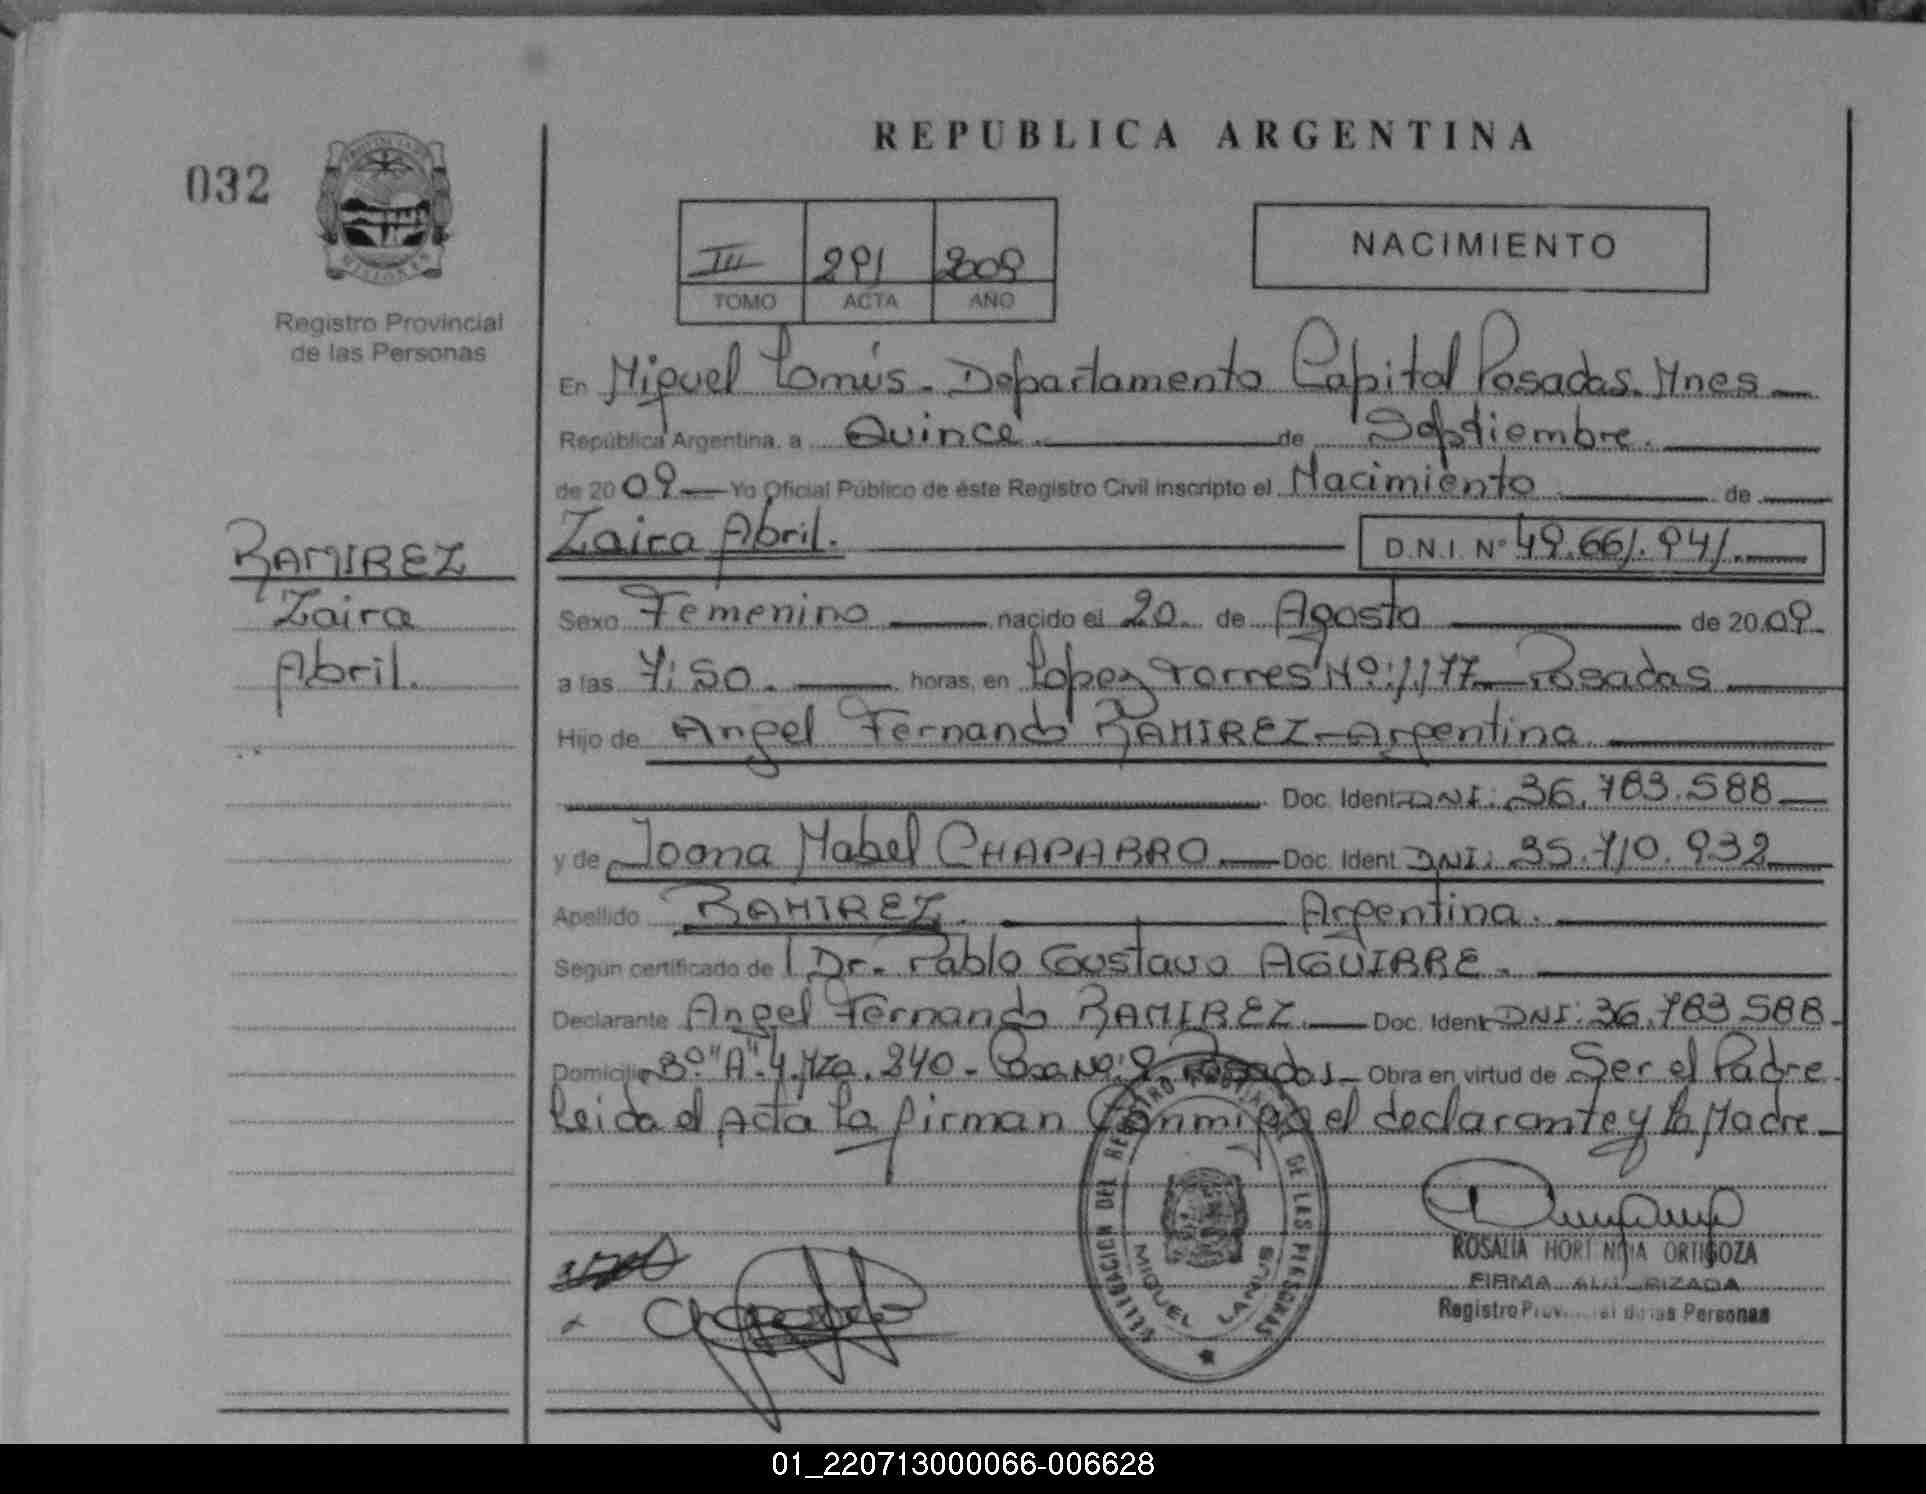 REPUBLICA ARGENTINA
032
Registro Provincial
de las Personas
III 291 2009
TOMO ACTA AÑO
NACIMIENTO
En Miguel Lanús. Departamento Capital Posadas. Mnes
República Argentina, a Quince de Septiembre.
de 2009 Yo Oficial Público de éste Registro Civil inscripto el Nacimiento de
Zaira Abril. D.N.I. Nº 49.661.941.
RAMIREZ
Zaira
Abril.
Sexo Femenino nacido el 20 de Agosto de 2009
a las 7:50. horas, en Lopez Torres Nº:1.177 Posadas
Hijo de Angel Fernando RAMIREZ-Argentina
Doc. Ident. DNI: 36.783.588
y de Joana Mabel CHAPARRO Doc. Ident. DNI: 35.710.932
Apellido RAMIREZ. Argentina.
Según certificado de Dr. Pablo Gustavo AGUIRRE.
Declarante Angel Fernando RAMIREZ. Doc. Ident. DNI: 36.783.588.
Domicilio Bº "A"-4. Mza. 240- Casa Nº: 9 Posadas- Obra en virtud de Ser el Padre.
Leida el Acta la firman Conmigo el declarante y la Madre
DELEGACION DEL REGISTRO DE LAS PERSONAS
MIGUEL LANUS
ROSALIA HORTENCIA ORTIGOZA
FIRMA AUTORIZADA
Registro Provincial de las Personas
01_220713000066-006628